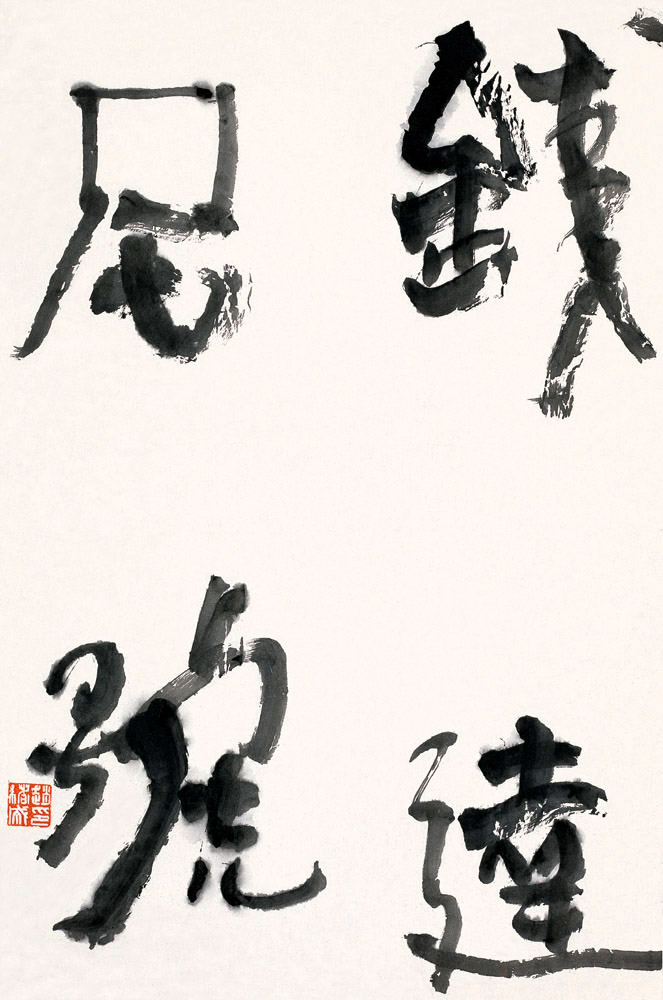 鐵達
尼號